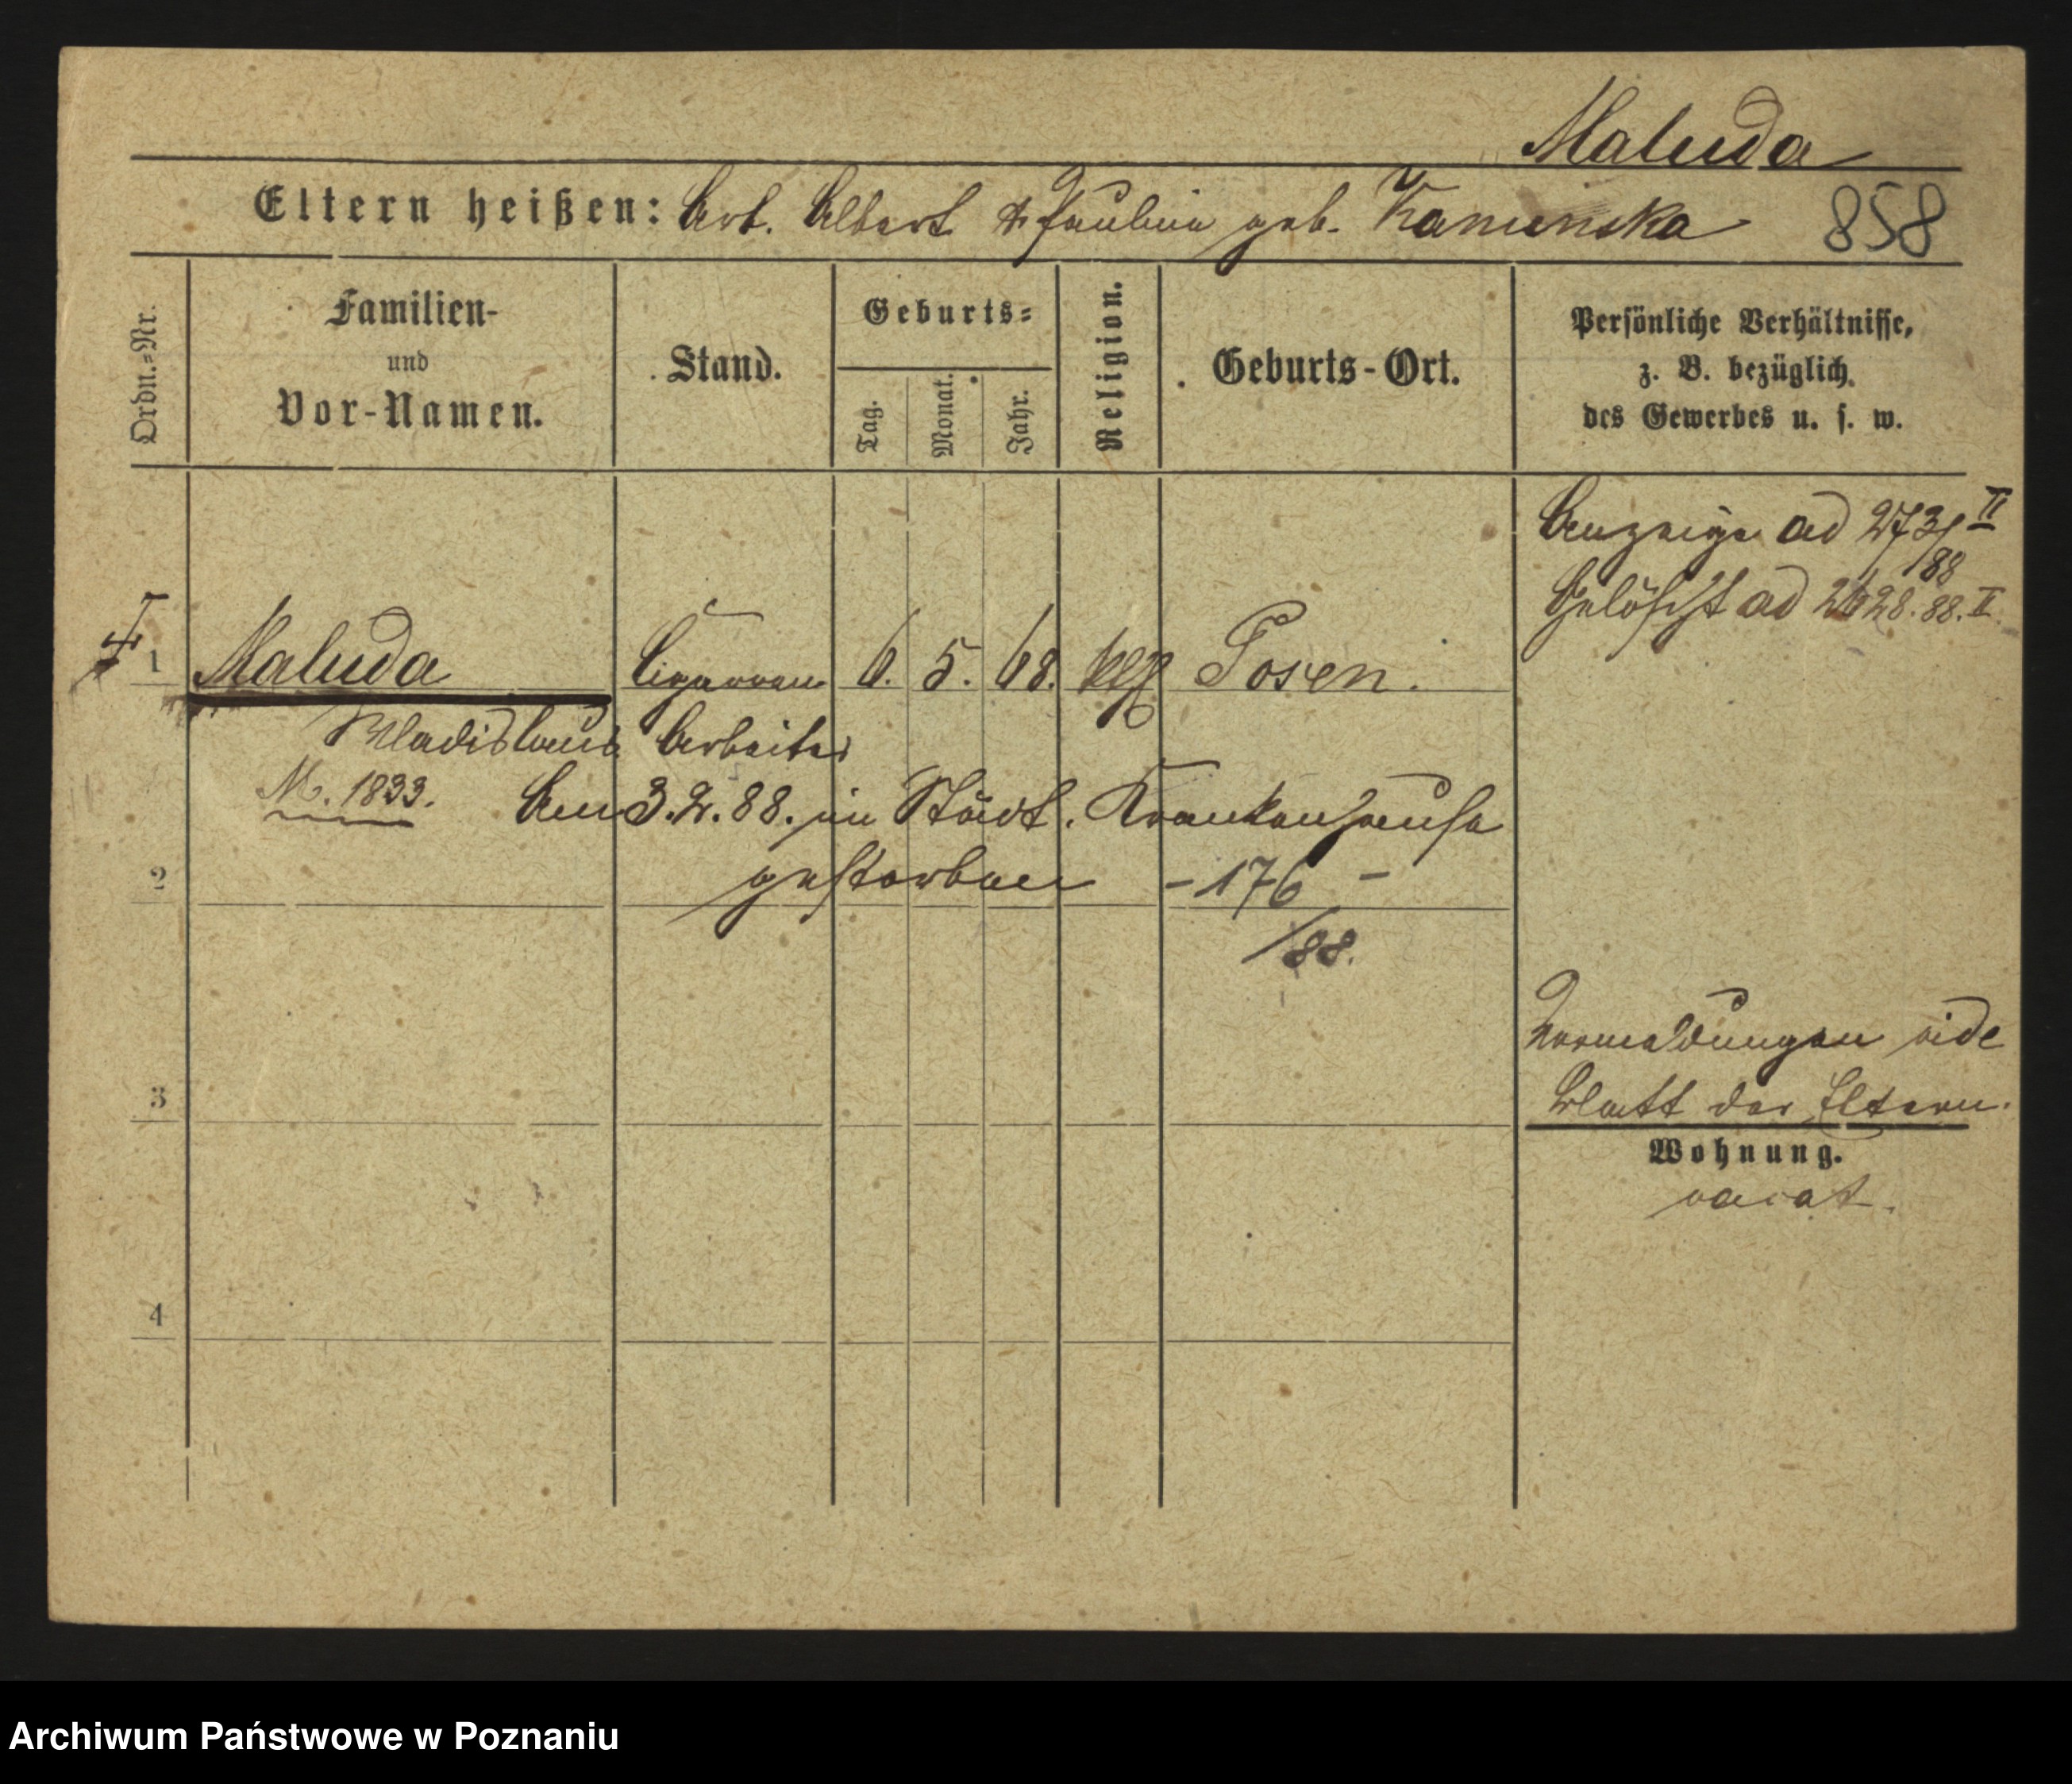 Maluda
Eltern heißen: Arb. Albert & Paulina geb. Kaminska 858
Ordn.-Nr.
Familien-
und
Vor-Namen.
Stand.
Geburts-
Tag. Monat. Jahr.
Religion.
Geburts-Ort.
Persönliche Verhältnisse,
z. B. bezüglich
des Gewerbes u. s. w.
Anzeige ad II
88
Gelöscht ad 88. II
1 Maluda Cigarren 6. 5. 68. Posen.
Wladislaus Arbeiter
M. 1833. Am 3.2.88. im Städt. Krankenhause
2 gestorben - 176 -
/88.
Vormeldungen vide
3 Blatt der Eltern.
Wohnung.
vacat.
4
Archiwum Państwowe w Poznaniu